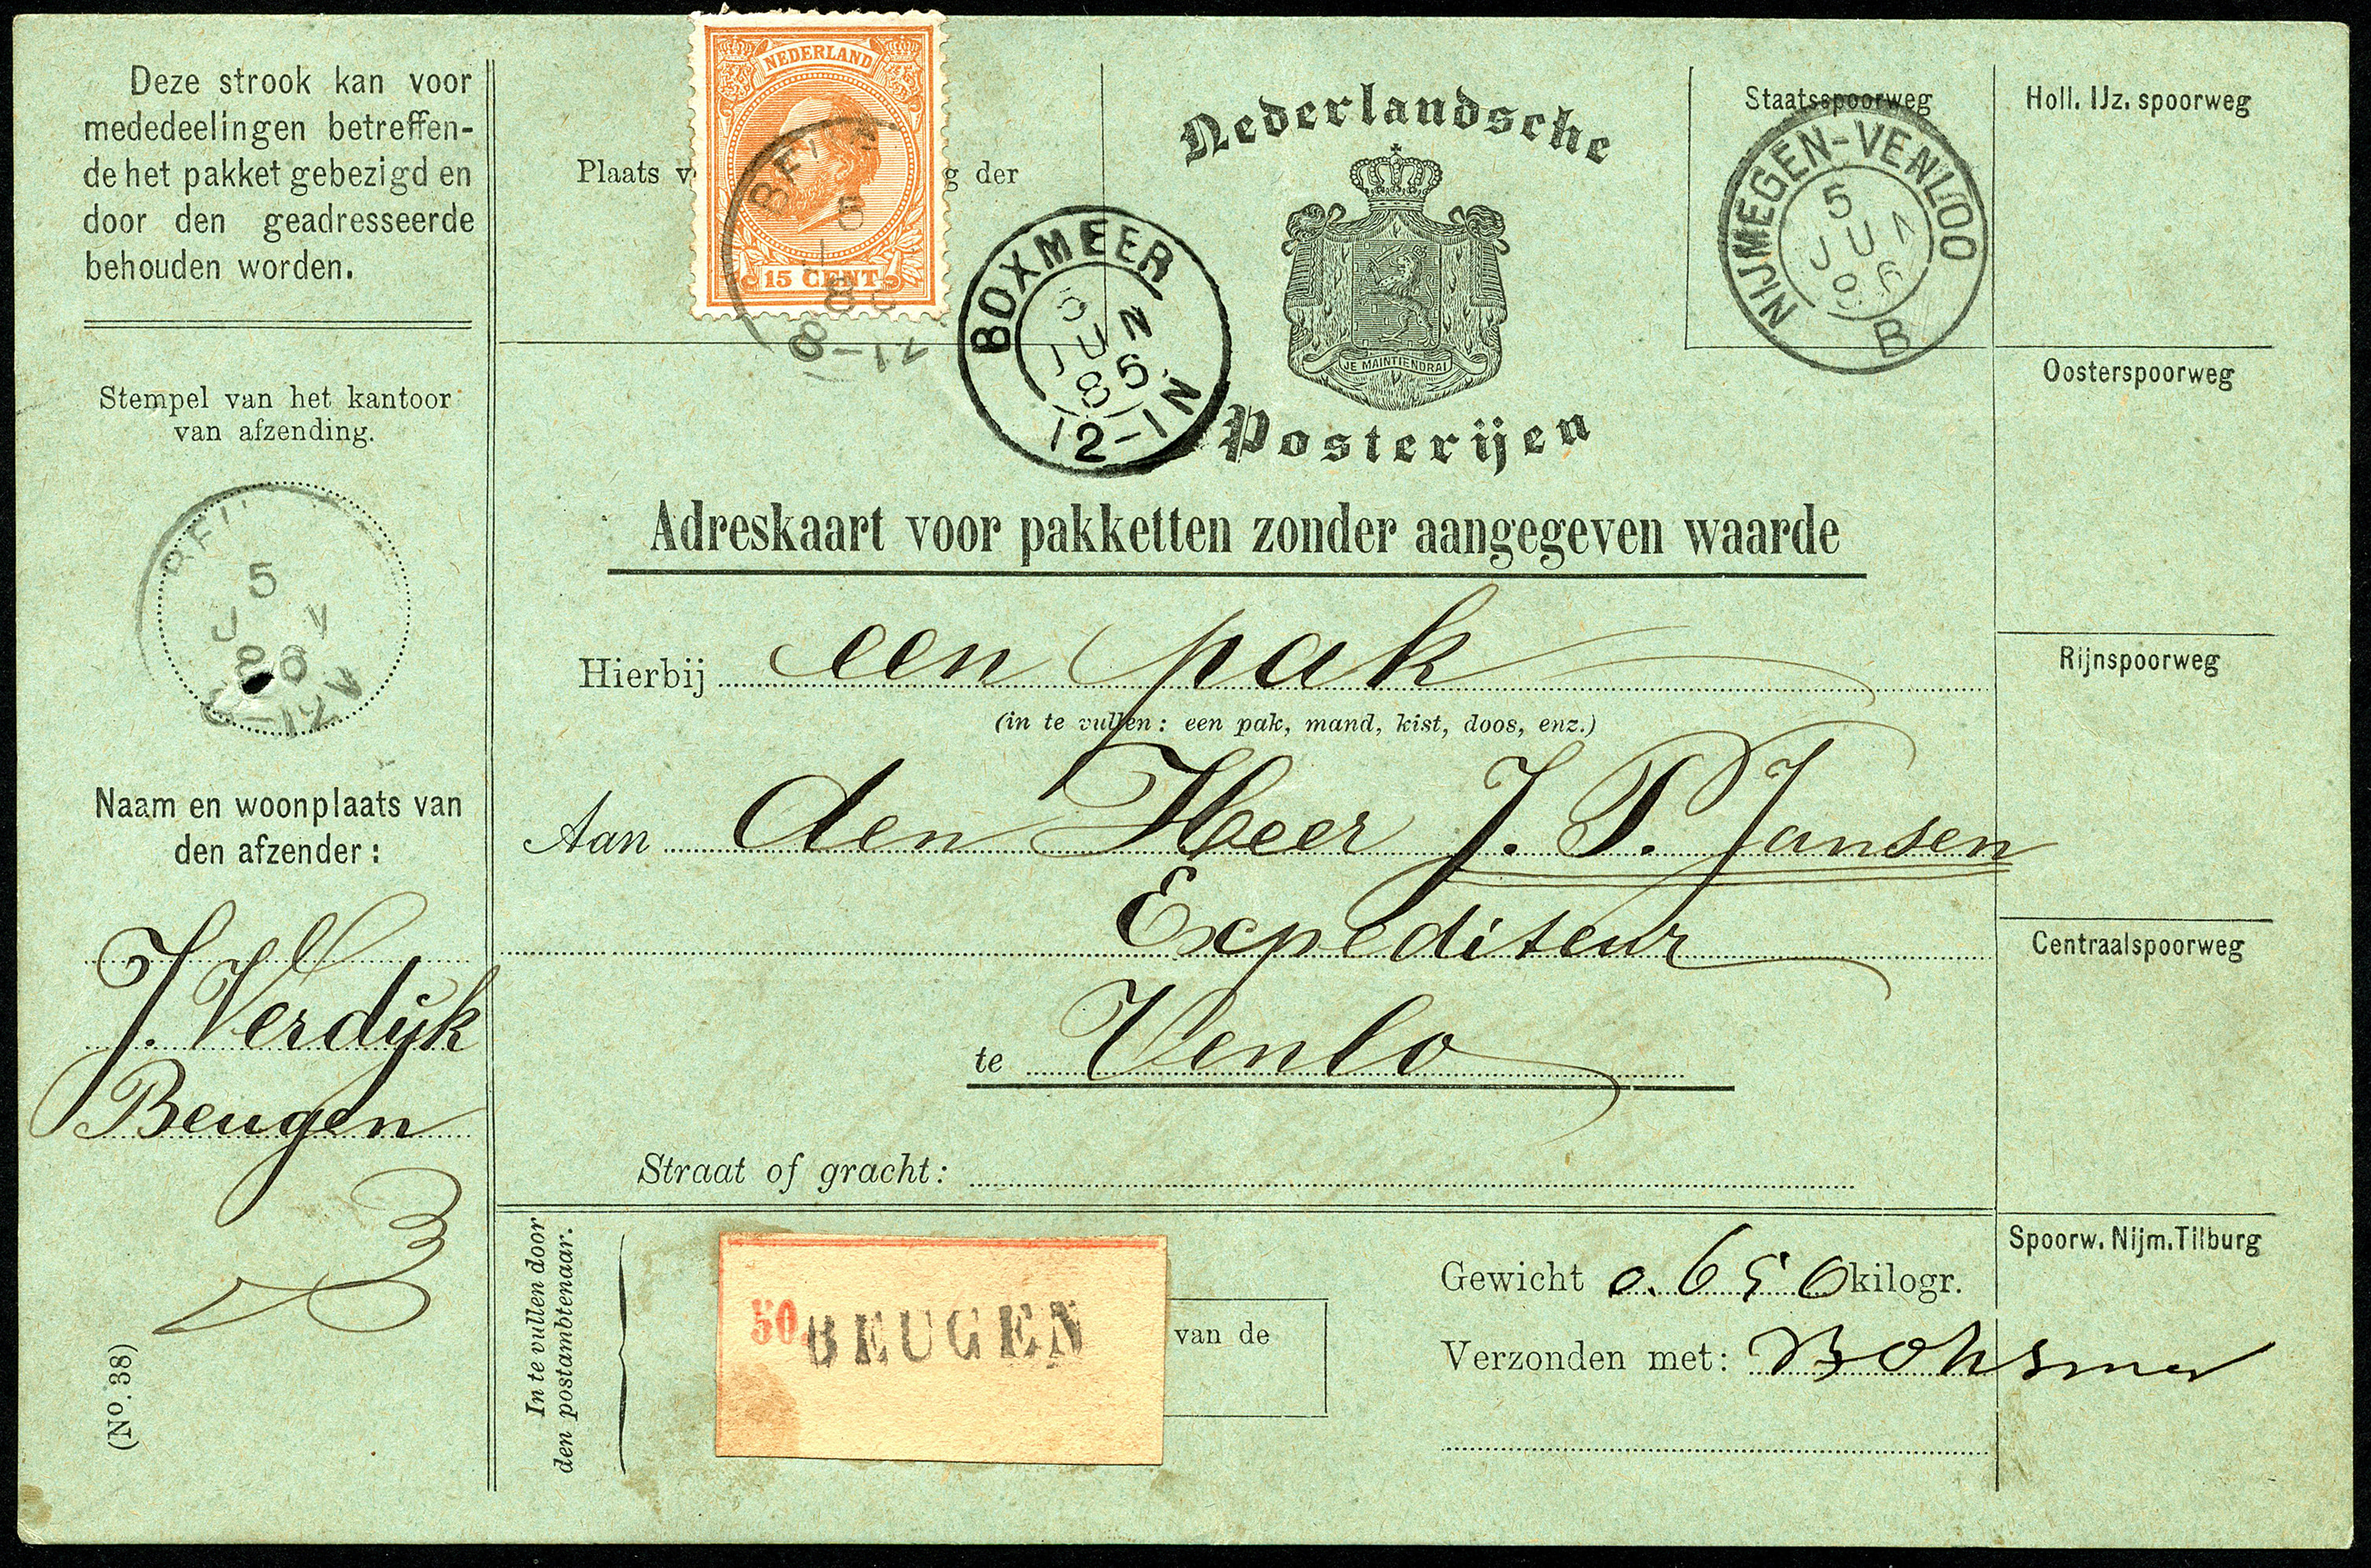 Deze strook kan voor
mededeelingen betreffen-
de het pakket gebezigd en
door den geadresseerde
behouden worden.
Stempel van het kantoor
van afzending.
5
86
Naam en woonplaats van
den afzender:
J. Verdijk
Beugen
(No. 38)
NEDERLAND
15 CENT
Plaats v
g der
5
8-12
BOXMEER
5
JUN
86
12-1N
Nederlandsche
JE MAINTIENDRAI
Posterijen
Staatsspoorweg
NIJMEGEN-VENLOO
5
B
Holl. IJz. spoorweg
Oosterspoorweg
Rijnspoorweg
Centraalspoorweg
Spoorw. Nijm. Tilburg
Adreskaart voor pakketten zonder aangegeven waarde
Hierbij een pak
(in te vullen: een pak, mand, kist, doos, enz.)
Aan den Heer J. P. Jansen
Expediteur
te Venlo
Straat of gracht:
In te vullen door
den postambtenaar.
50 BEUGEN
van de
Gewicht 0.650 kilogr.
Verzonden met: